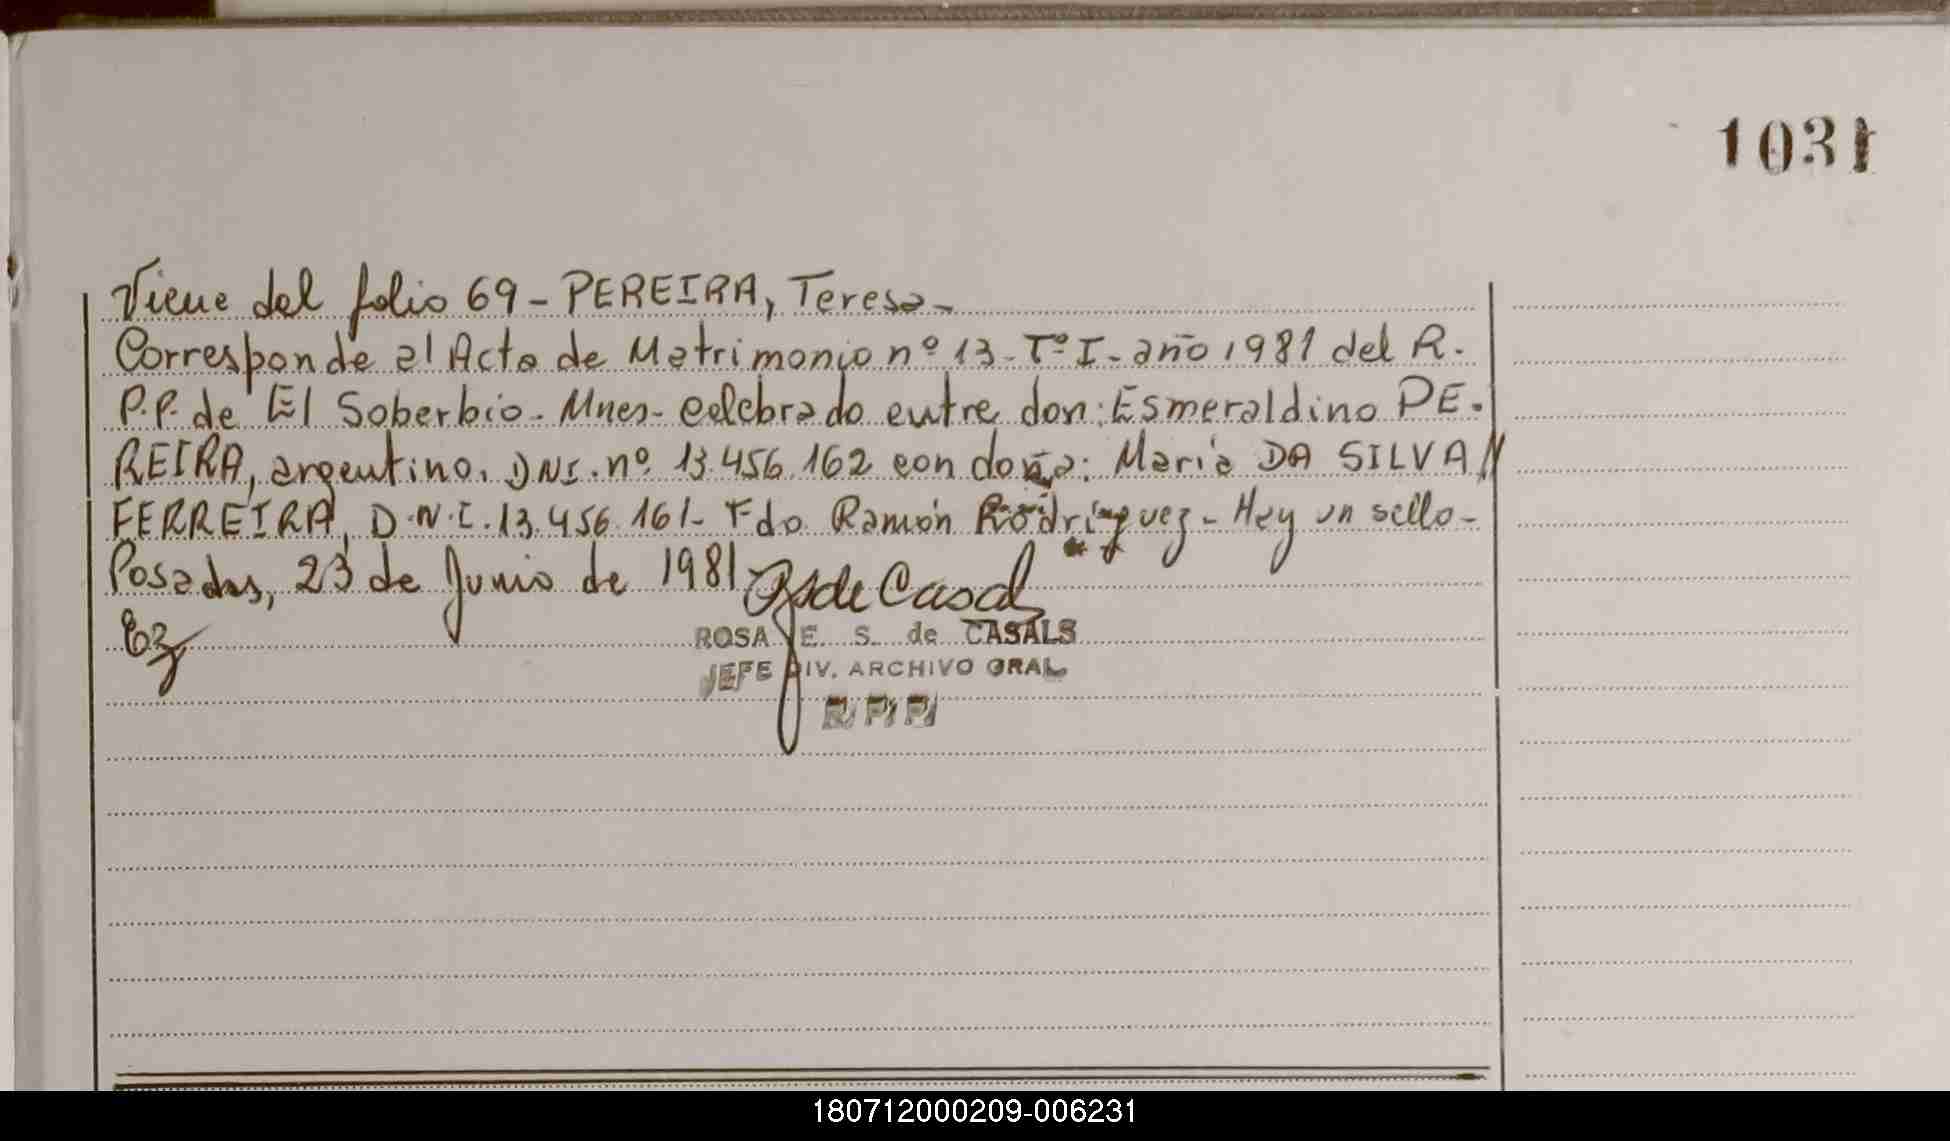 1031
Viene del folio 69 - PEREIRA, Teresa -
Corresponde al Acta de Matrimonio nº 13 - Tº I - año 1981 del R.
P.P. de El Soberbio - Mnes - celebrado entre don: Esmeraldino PE-
REIRA, argentino, DNI. nº 13.456.162 con doña: Maria DA SILVA //
FERREIRA, D.N.I. 13.456.161 - Fdo. Ramón Rodríguez - Hay un sello -
Posadas, 23 de Junio de 1981 -
ROSA E. S. de CASALS
JEFE DIV. ARCHIVO GRAL
R.P.P.
180712000209-006231